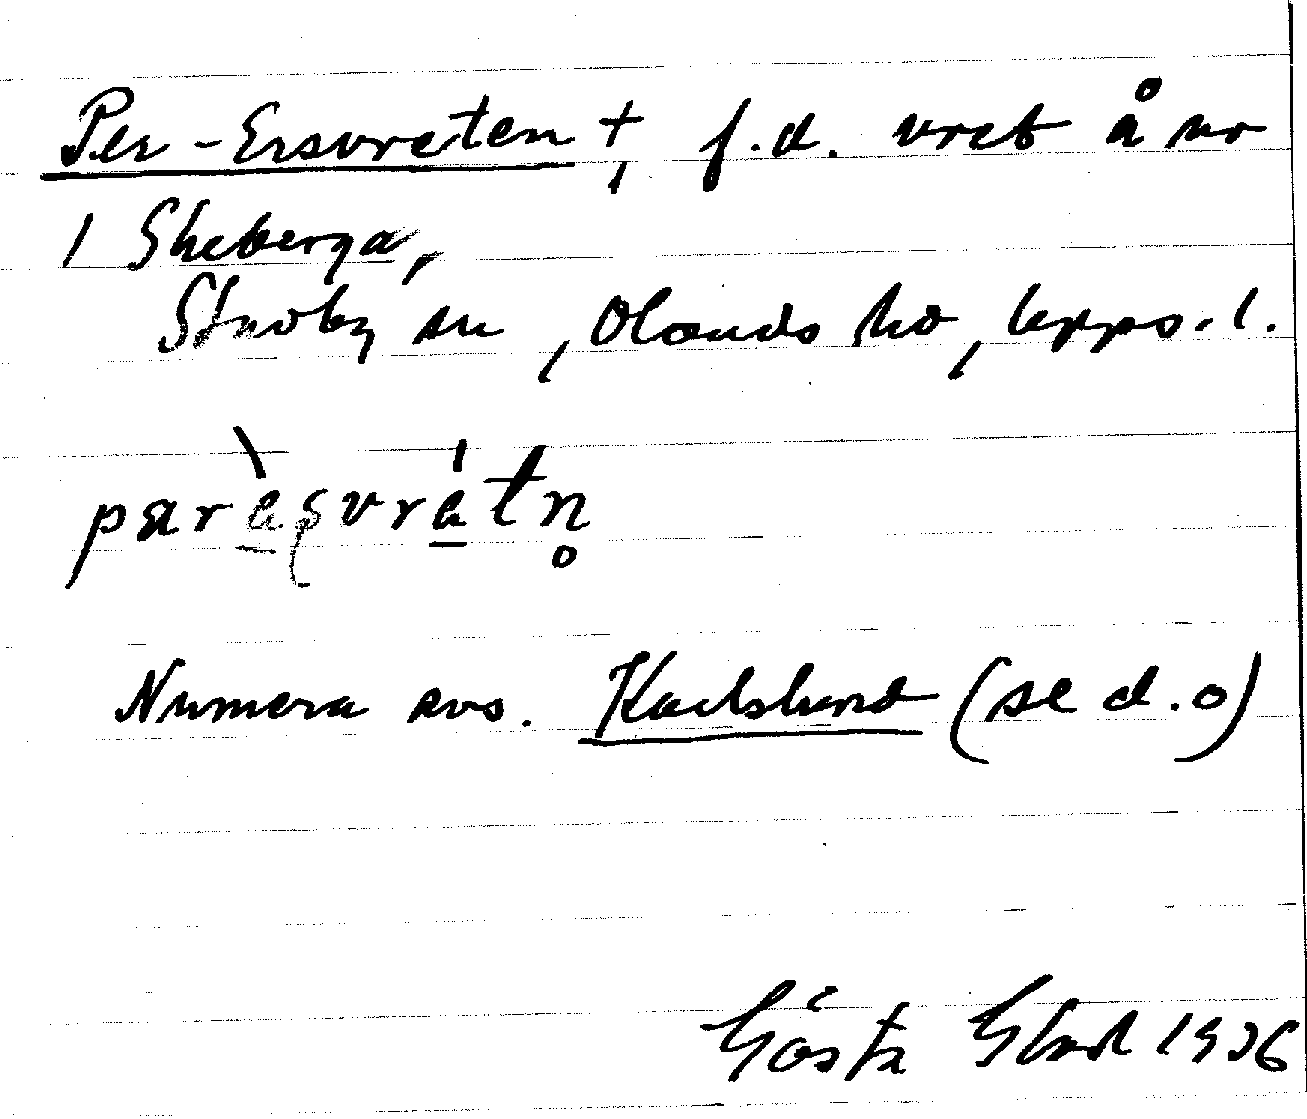 Per-Ersvreten †, f.d. vret å nr
1 Skeberga,
Skuby sn, Olands hd, Upps. l.
paràsvrátn̥
Numera avs. Karlslund (se d.o)
Gösta 1936